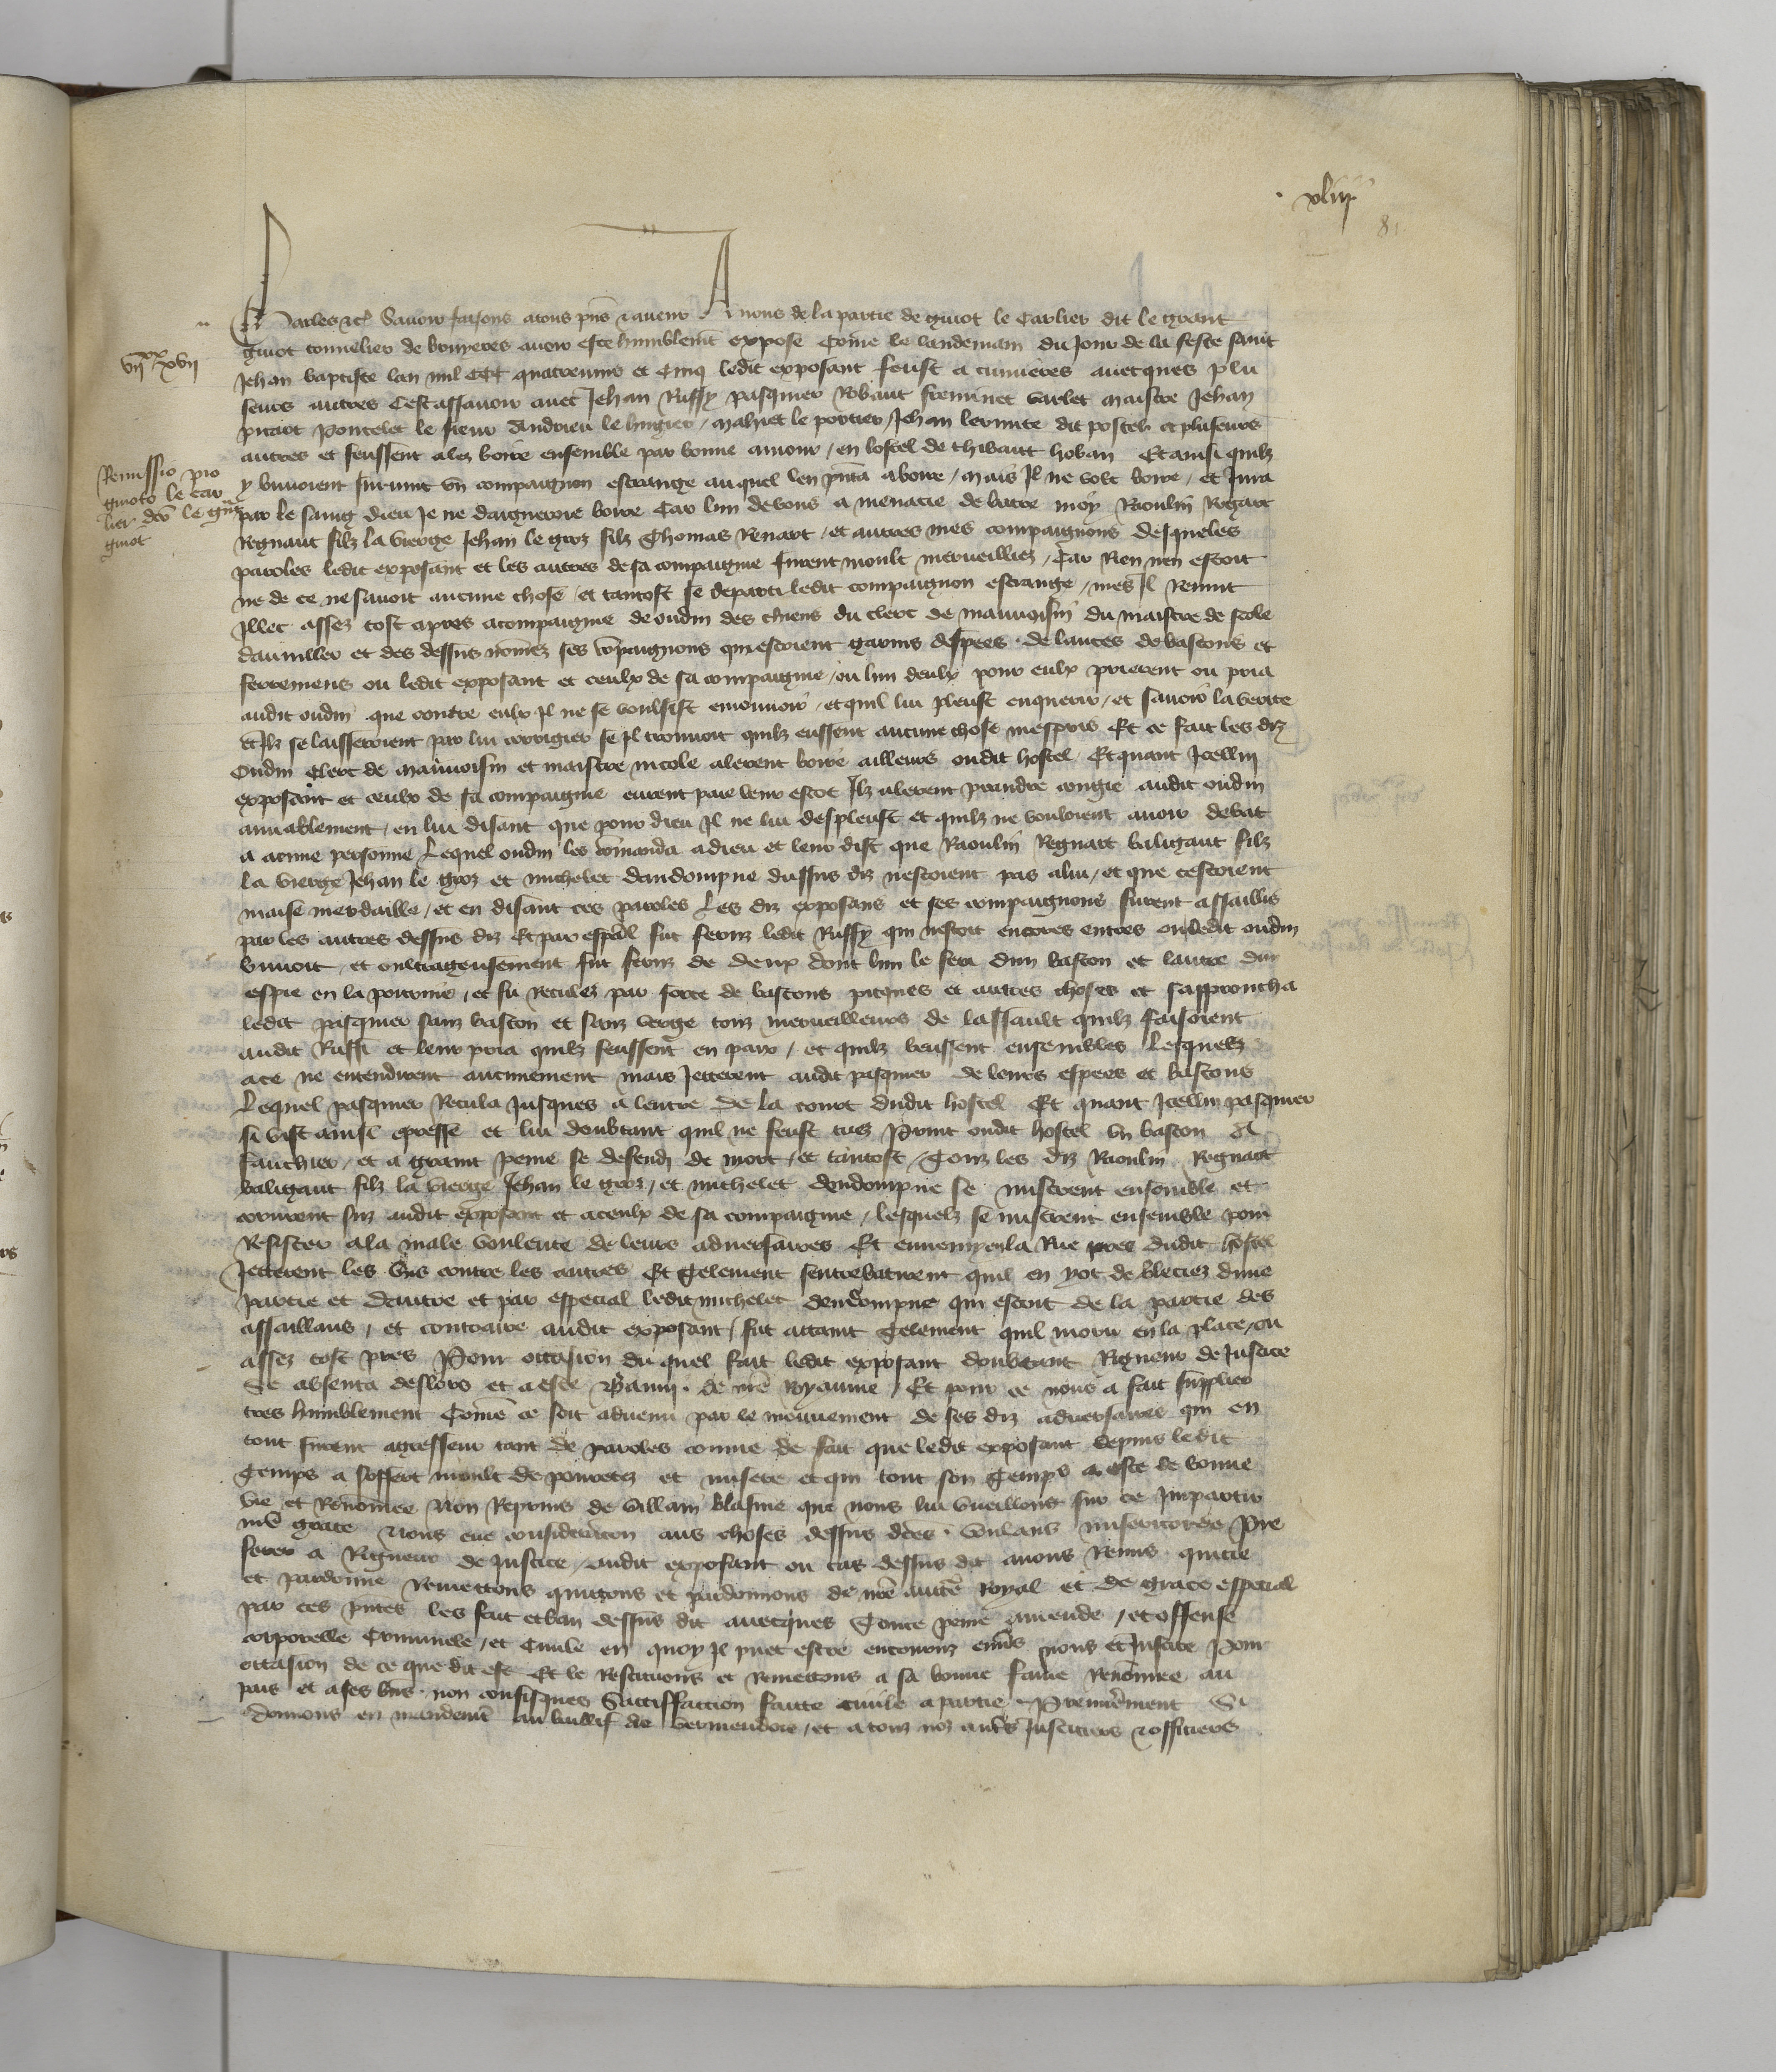 xliiij
81
Charles etc. Savoir faisons a tous pns et avenir A nous de la partie de guiot le Carlier dit le grant
guiot tonnelier de bruyeres avoir este humblemt expose Come le landemain du jour de la feste saint
Jehan baptiste lan mil CCC quatrevins et Cinq ledit exposant feust a cuinieres avecques plu
seurs autres Cestassavoir avec Jehan Ruffy pasquier Robaut freminet varlet maistre Jehan
picart poncelet le sieur Andrieu le hugier / mahiet le portier / Jehan lermite dit postel et pluseurs
autres et feussent alez boire ensemble par bonne amour / en lostel de thibaut hoban Et ainsi quilz
y buvoient survint un compaignon estrange auquel len pnta a boire / mais Il ne volt boire / et Jura
par le sang dieu Je ne daigneroie boire Car lun de vous a menacie de batre moy Raoulin Regnart
Regnaut filz la vierge Jehan le gros filz Thomas Renart / et autres mes compaignons desqueles
paroles ledit exposant et les autres de sa compaignie furent moult merveilliez / Car Rien nen estoit
ne de ce ne savoit aucune chose / et tantost se departi ledit compaignon estrange / mes Il Revint
Illec assez tost apres acompaignie de oudin des chiens du clerc de mauvoisin du maistre de scole
daumller et des dessus nomez ses compaignons qui estoient garnis despees de lances de bastons et
ferremens ou ledit exposant et ceulx de sa compaignie / ou lun deulx pour eulx prierent ou pria
audit oudin que contre eulx Il ne se voulsist emouvoir / et quil lui pleust enquerir / et savoir la verite
et Ilz se laisseroient par lui corrigier se Il trouvoit quilz eussent aucune chose mespris Et ce fait les diz
Oudin Clerc de mauvoisin et maistre nicole alerent boire ailleurs oudit hostel Et quant Icellui
exposant et ceulx de sa compaignie eurent paie leur escot Ilz alerent prandre congie audit oudin
amiablement / en lui disant que pour dieu Il ne lui despleust et quilz ne vouloient avoir debat
a aucune personne Lequel oudin les comanda a dieu et leur dist que Raoulin Regnart baligaut filz
la vierge Jehan le gros et michelet dandompne dessus diz nestoient pas a lui / et que cestoient
maise merdaille / et en disant ces paroles Les diz exposans et ses compaignons furent assaillis
par les autres dessus diz Et par espal fut feruz ledit Ruffy qui nestoit encores entres ou ledit oudin
buvoit / et oultrageusement fut feruz de deux dont lun le feri dun baston et lautre dun
espie en la poitrine / et fu reculez par force de bastons piques et autres choses et sapproucha
ledit pasquier sanz baston et sanz verge touz merveilleurs de lassault quilz faisoient
audit Ruffi et leur pria quilz feussent en paix / et quilz beussent ensembles Lesquelz
a ce ne entendirent aucunement mais Jetterent audit pasquier de leurs espees et bastons
Lequel pasquier Recula Jusques a lentre de la court dudit hostel Et quant Icellui pasquier
si vist ainsi epresse et lui doubtant quil ne feust tuez Print oudit hostel un baston A
fauchier / et a grant peine se defendi de mort / et tantost / Touz les diz Raoulin Regnart
baligaut filz la vierge Jehan le gros / et michelet dendompne se mistrent ensemble et
coururent sur audit exposant et a ceulx de sa compaignie / lesquelz se mistrent ensemble pour
Resister a la male voulente de leurs adversaires Et en la Rue pres dudit hostel
Jetterent les uns contre les autres Et Telement sentrebatirent quil en yot de bleciez dune
partie et dautre et par especial ledit michelet dendompne qui estoit de la partie des
assaillans / et contraire audit exposant / fut attaint Telement quil moru en la place / ou
assez tost pres Pour occasion du quel fait ledit exposant doubtant Rigueur de Justice
Se absenta deslors et a este Banny de nre Royaume / Et pour ce nous a fait supplier
tres humblement Come ce soit advenu par le mouvement de ses diz adversaires qui en
tout furent agresseur tant de paroles comme de fait que ledit exposant depuis ledit
Temps a soffert moult de povretez et misere et qui tout son Temps a este de bonne
vie et Renomee Non Repris de villain blasme que nous lui vueillons sur ce Impartir
nre grace Nous eue consideracion aus choses dessus dctes voulans misericorde Pre
ferer a Rigueur de Justice / audit exposant ou cas dessus dit avons Remis quictie
et pardonne Remettons quictons et pardonnons de nre aucte Royal et de grace especial
par ces pntes les fait et ban dessus dit avecques Toute peine amende / et offense
corporelle Criminele / et Civile en quoy Il puet estre encouruz envs nous et Justice Pour
occasion de ce que dit est Et le Restituons et Remettons a sa bonne fame Renomee au
pais et a ses bns non confisques Sattiffaction faitte civile a partie Premieremt Si
donnons en mandemt au bailli de vermendois / et a touz noz auts Justiciers et officiers
viixx xvii
Remissio pro
guioto le car
lier dco le grant
guiot